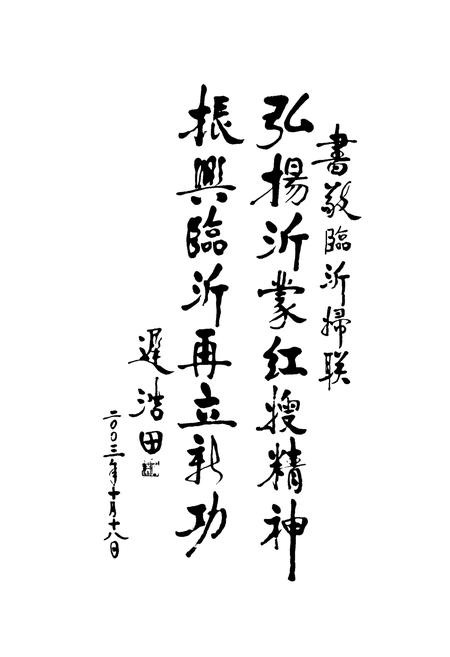 書敬臨沂婦联
弘揚沂蒙红嫂精神
振興臨沂再立新功
遲浩田
二〇〇三年十月十八日